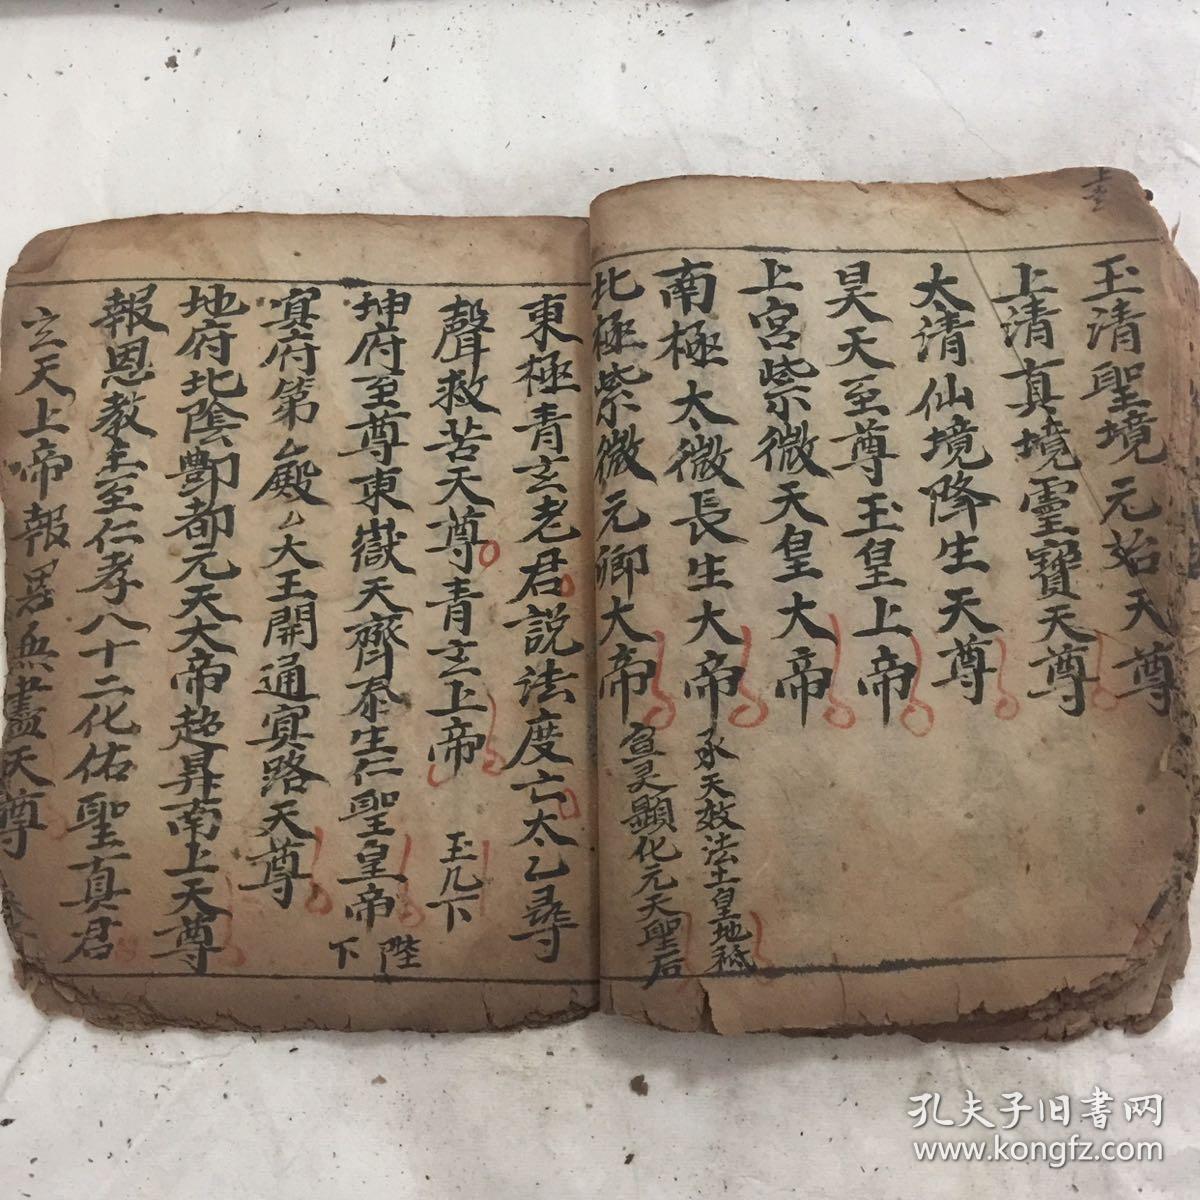 玉清聖境元始天尊
上清真境靈寶天尊
太清仙境降生天尊
昊天至尊玉皇上帝
上宮紫微天皇大帝
南極太微長生大帝
承天效法土皇地祗
北極紫微元卿大帝
宣灵顯化元天聖后
東極青玄老君説法度亡太乙尋
聲救苦天尊青玄上帝 玉几下
坤府至尊東嶽天齊泰生仁聖皇帝
陛下
冥府第厶殿厶大王開通冥路天尊
地府北陰酆都元天大帝超昇南上天尊
報恩教主至仁孝八十二化佑聖真君
玄天上帝報恩無盡天尊
孔夫子旧书网
www.kongfz.com